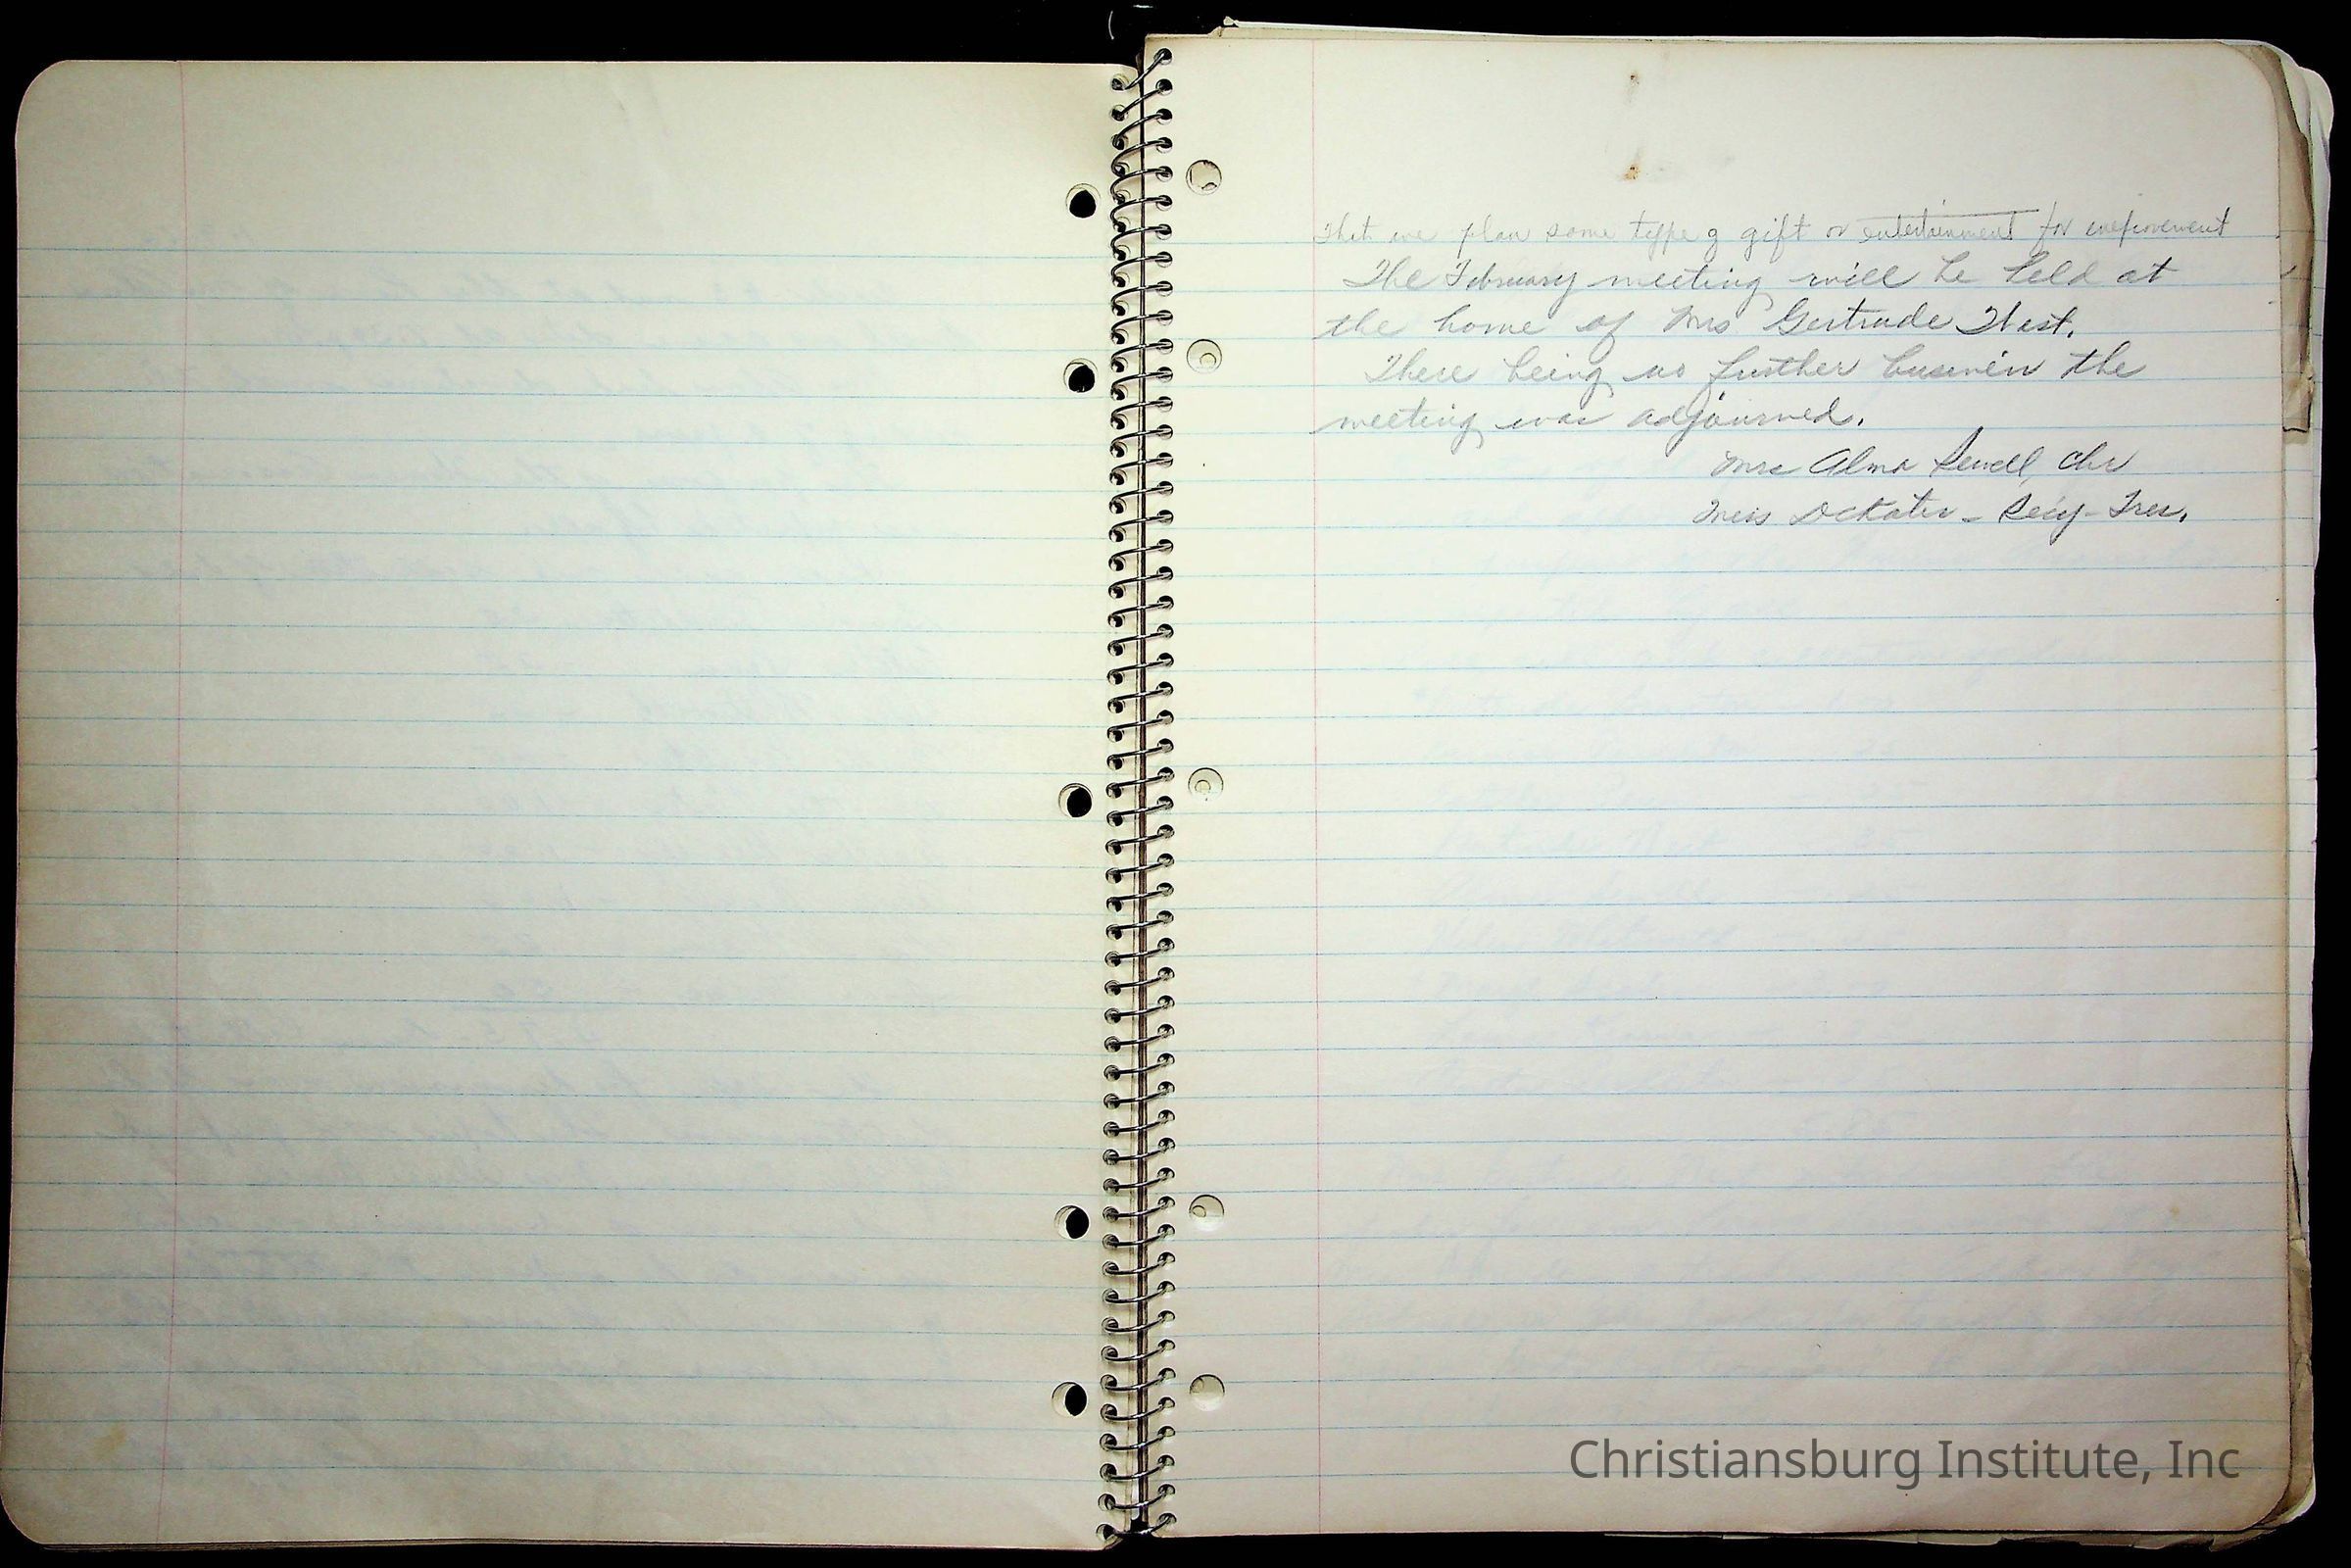 That we plan some type of gift or entertainment for improvement
The February meeting will be held at
the home of Mrs Gertrude West.
There being no further business the
meeting was adjourned.
Mrs Alma Sewell, Chr
Miss Decatur - Sec'y - Tres.
Christiansburg Institute, Inc